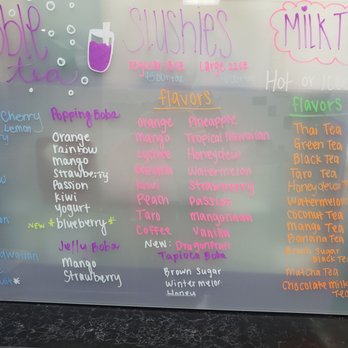 bble
tea
Cherry
Lemon
Popping Boba
Orange
rainbow
mango
Strawberry
Passion
kiwi
yogurt
NEW *blueberry*
Jelly Boba
Mango
Strawberry
SLUSHIES
Large 22oz
flavors
orange Pineapple
mango Tropical Hawaiian
Lychee Honeydew
Watermelon
kiwi Strawberry
Peach Passion
Taro mangonada
Coffee Vanilla
New: Dragonfruit
Tapioca Boba
Brown Sugar
Wintermelon
Honey
MILK T
Hot or Ice
flavors
Thai Tea
Green Tea
Black Tea
Taro Tea
Honeydew Tea
Watermelon
Coconut Tea
Mango Tea
Banana Tea
Brown Sugar
Black Tea
Matcha Tea
Chocolate Milk
Tea